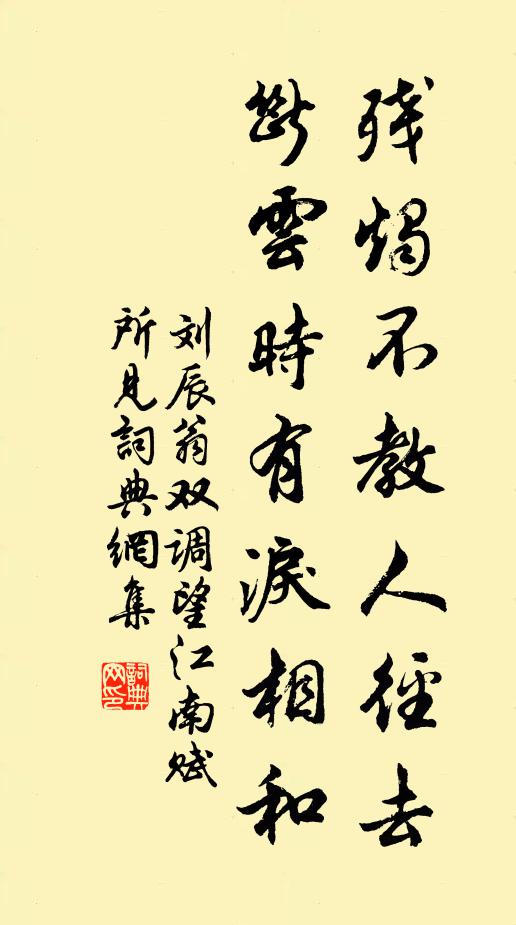 残燭不教人徑去
斷雲時有淚相和
刘辰翁双调望江南赋
所見詞典網集
詞典
网印